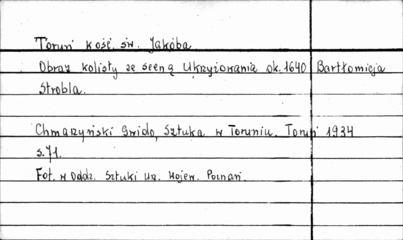 Toruń kość. św. Jakóba
Obraz kolisty ze sceną Ukrzyżowania ok. 1640 Bartłomieja
Strobla.
Chmarzyński Gwido, Sztuka w Toruniu. Toruń 1934
s.71.
Fot. w Oddz. Sztuki Urz. Wojew. Poznań.